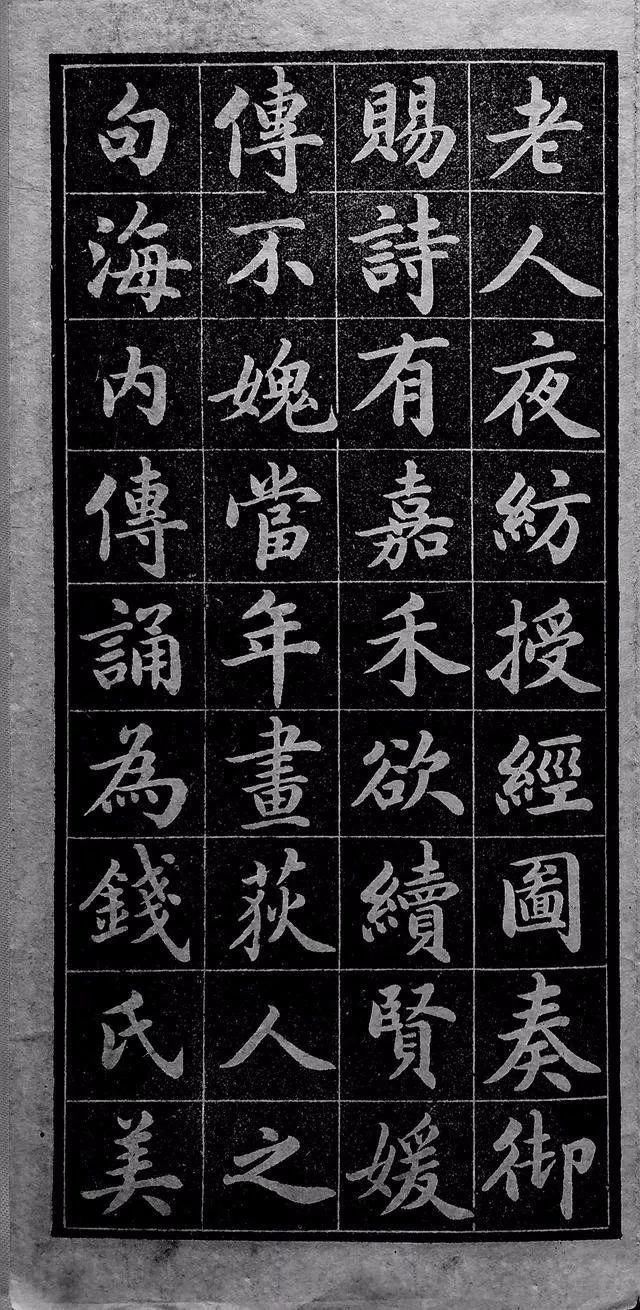 老人夜紡授經圖奏御
賜詩有嘉禾欲續賢媛
傳不媿當年畫荻人之
句海内傳誦為錢氏美